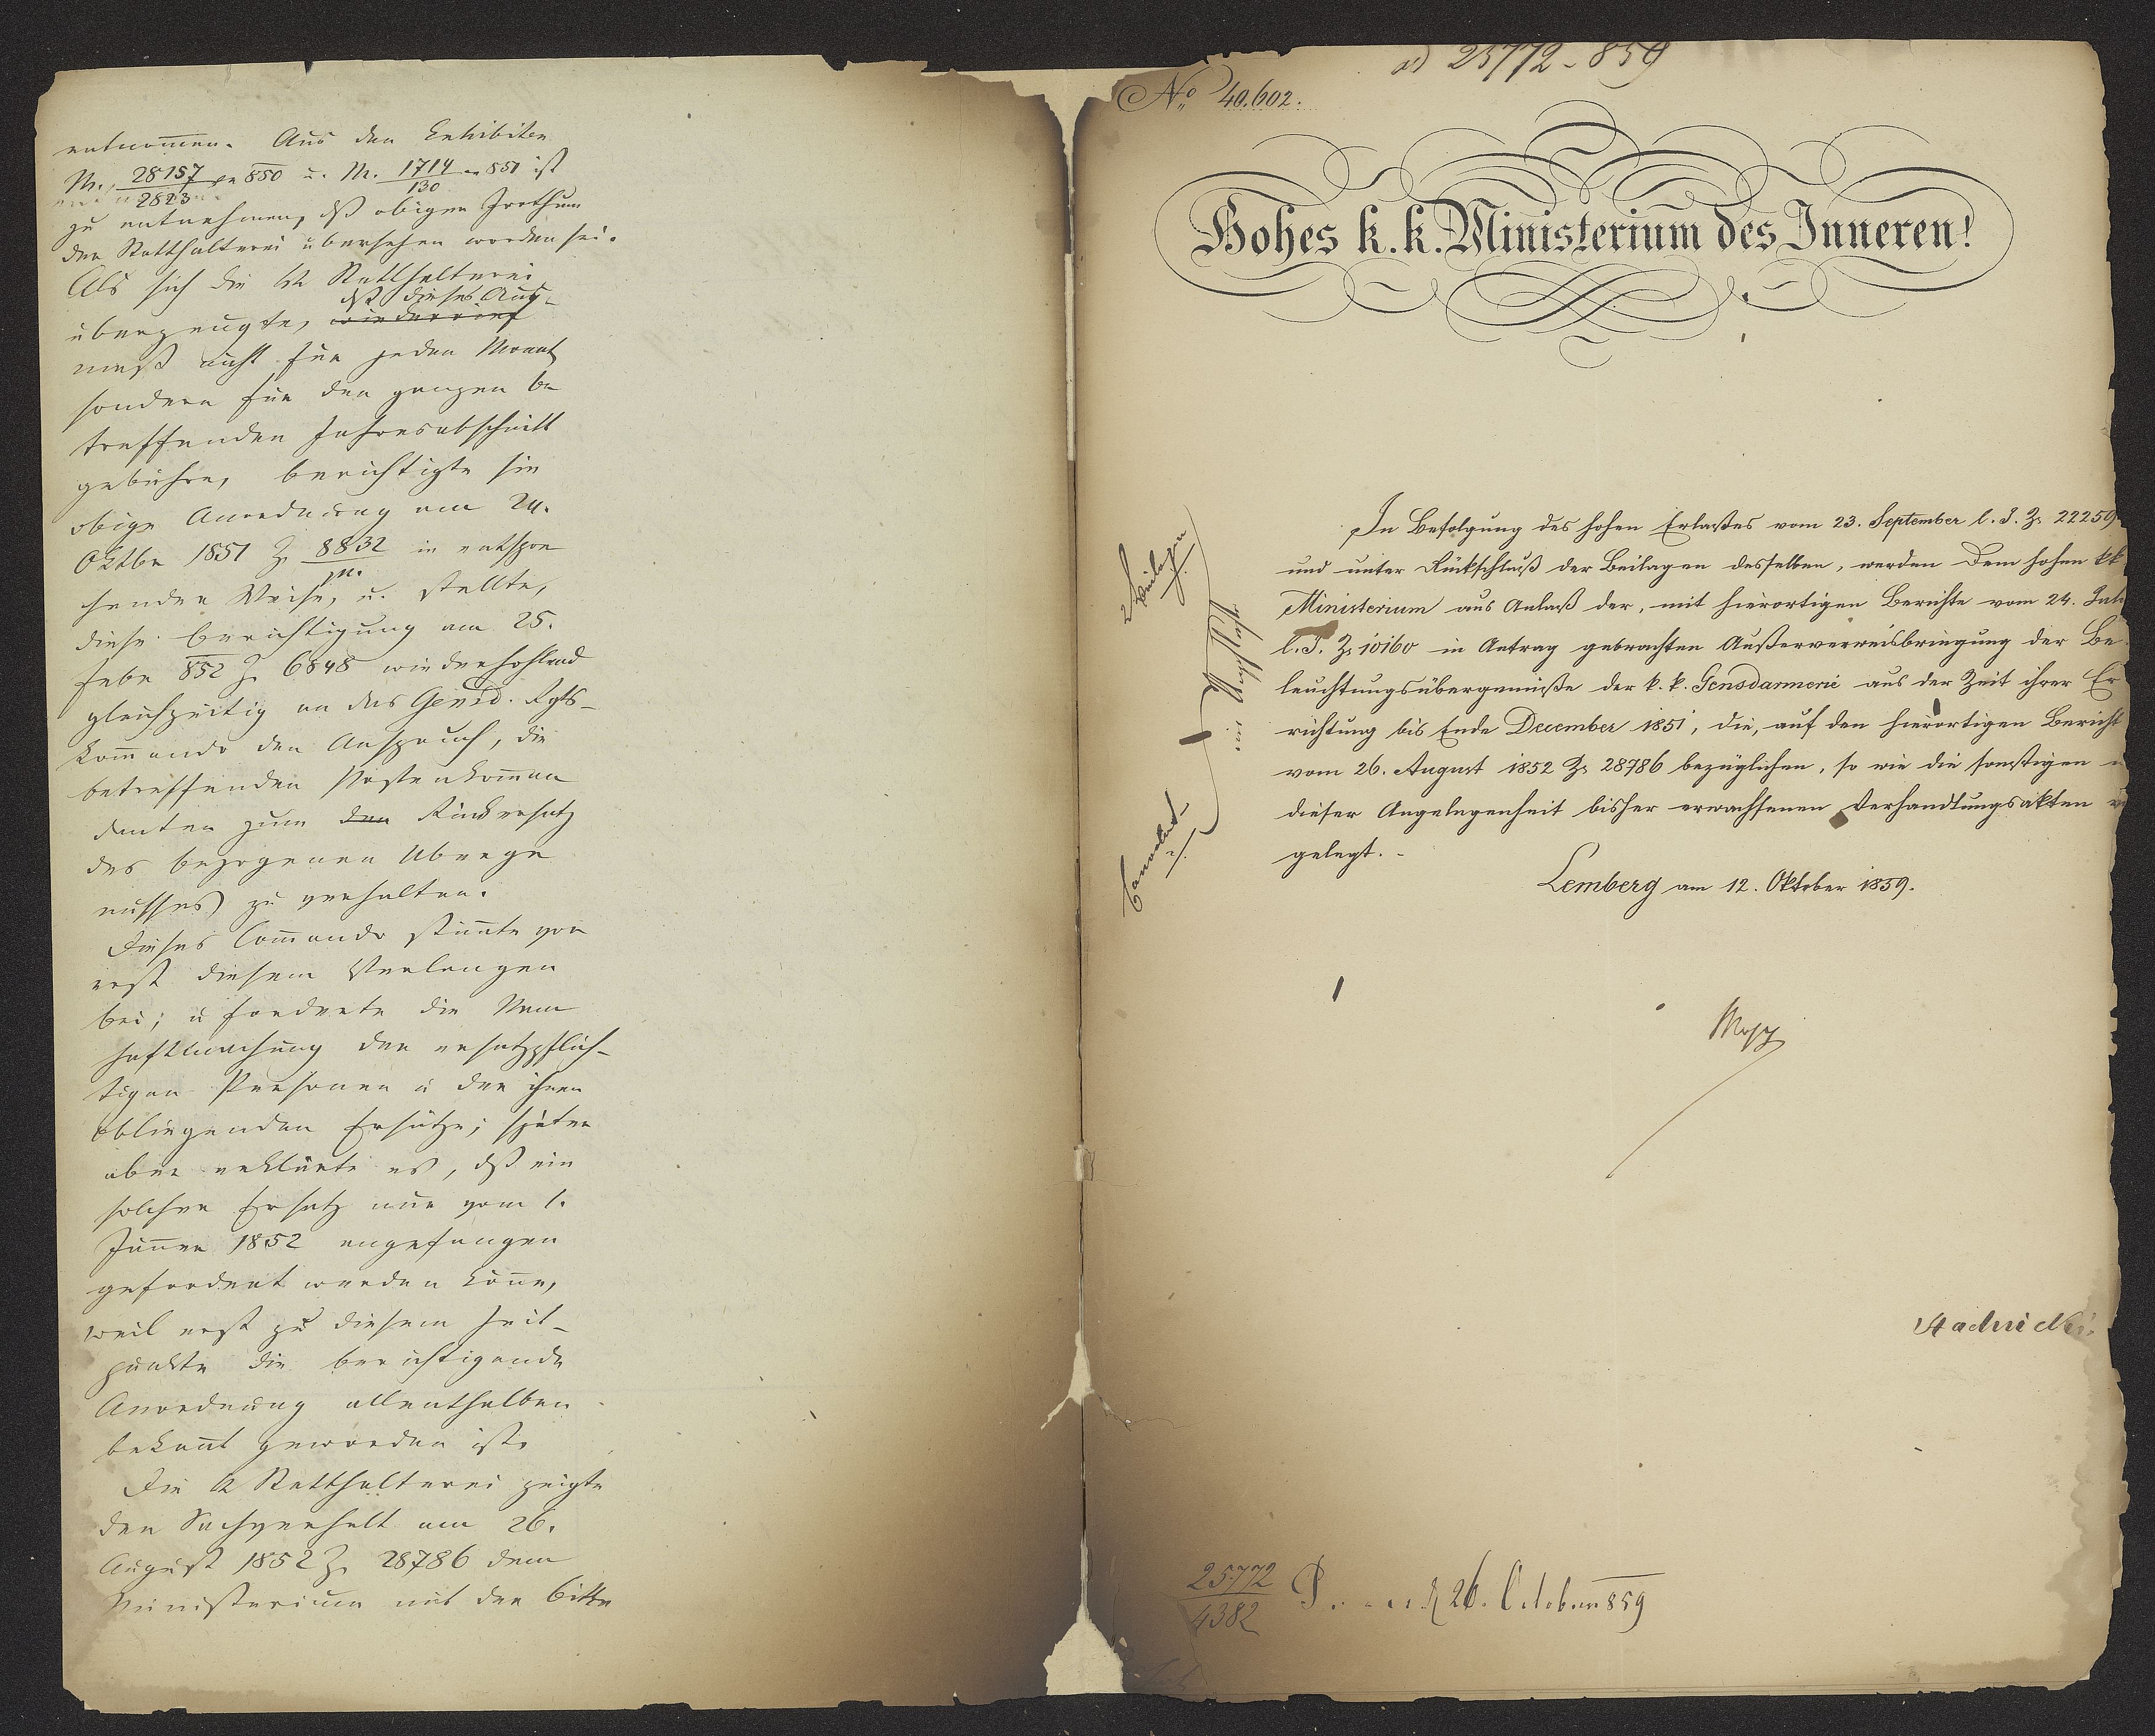 entnom̄en. Aus den Exhibiten
Nr. 28157/2823 ex 850 u. Nr. 1714/130 ex 851 ist
zu entnehmen, dß obiger Irrthum
der Statthalterei übersehen worden sei.
Als sich die kk Statthalterei
überzeugte, wiederrief dß dieses Aus-
maß nicht für jeden Monat
sondern für den ganzen be
treffenden Jahresabschnitt
gebühre, berichtigte sie
obige Anordnung am 24.
Oktbr 1851 Z. 8832/pr. in entspre
chender Weise, u. stellte,
diese Berichtigung am 25.
Febr 852 Z. 6848 wiederhohlend
gleichzeitig an das Gensd. Rgts-
Kom̄ando den Anspruch, die
betreffenden Postenkom̄an
danten zum den Rückersatz
des bezogenen Überge
nusses zu verhalten.
Dieses Com̄ando stim̄te vor
erst diesem Verlangen
bei; u forderte die Nam
haftmachung der ersatzpflich-
tigen Personen u der ihnen
obliegenden Ersätze; später
aber erklärte es, dß ein
solcher Ersatz nur vom 1.
Jänner 1852 angefangen
gefordert werden kön̄e,
weil erst zu diesem Zeit-
punkte die berichtigende
Anordnung allenthalben
bekan̄t geworden ist.
Die k Statthalterei zeigte
den Sachverhalt am 26.
August 1852 Z. 28786 dem
Ministerium mit der Bitte
ad 25772-859
No 40.602.
Hohes k.k. Ministerium des Inneren!
In Befolgung des hohen Erlaßes vom 23. September l. J. Zs 22259
und unter Rückschluß der Beilagen desselben, werden Dem hohen kk
Ministerium aus Anlaß der, mit hierortigen Berichte vom 24. Juli
l. J. Zs 10160 in Antrag gebrachten Außerverweisbringung der Be
leuchtungsübergenüße der k. k. Gensdarmerie aus der Zeit ihrer Er
richtung bis Ende December 1851, die, auf den hierortigen Bericht
vom 26. August 1852 Zs 28786 bezüglichen, so wie die sonstigen
dieser Angelegenheit bisher erwachsenen Verhandlungsakten
gelegt.-
Lemberg am 12. Oktober 1859.
Beilagen
Mosch
25772/4382 26. October 859